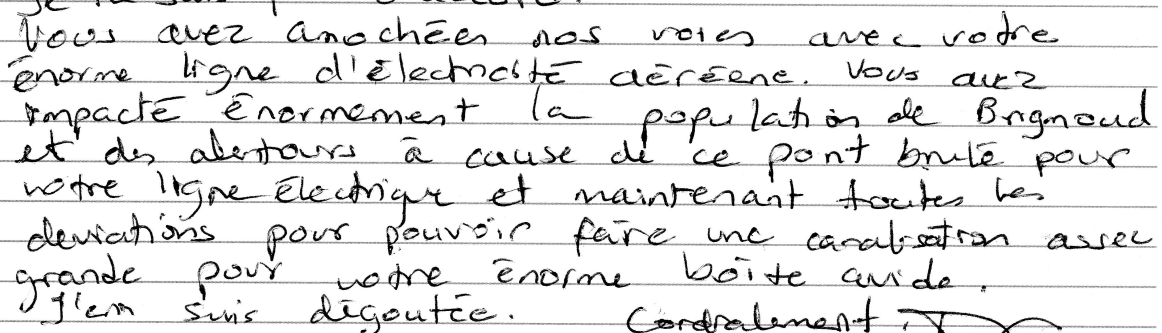 Vous avez amochées nos voies avec votre
énorme ligne d'électricité aéréene. Vous avez
impacté énormement la population de Brignoud
et des alentours à cause de ce pont brulé pour
votre ligne électrique et maintenant toutes les
deviations pour pouvoir faire une canalisation assez
grande pour votre énorme boîte avide.
J'en suis dégoutée. Cordialement